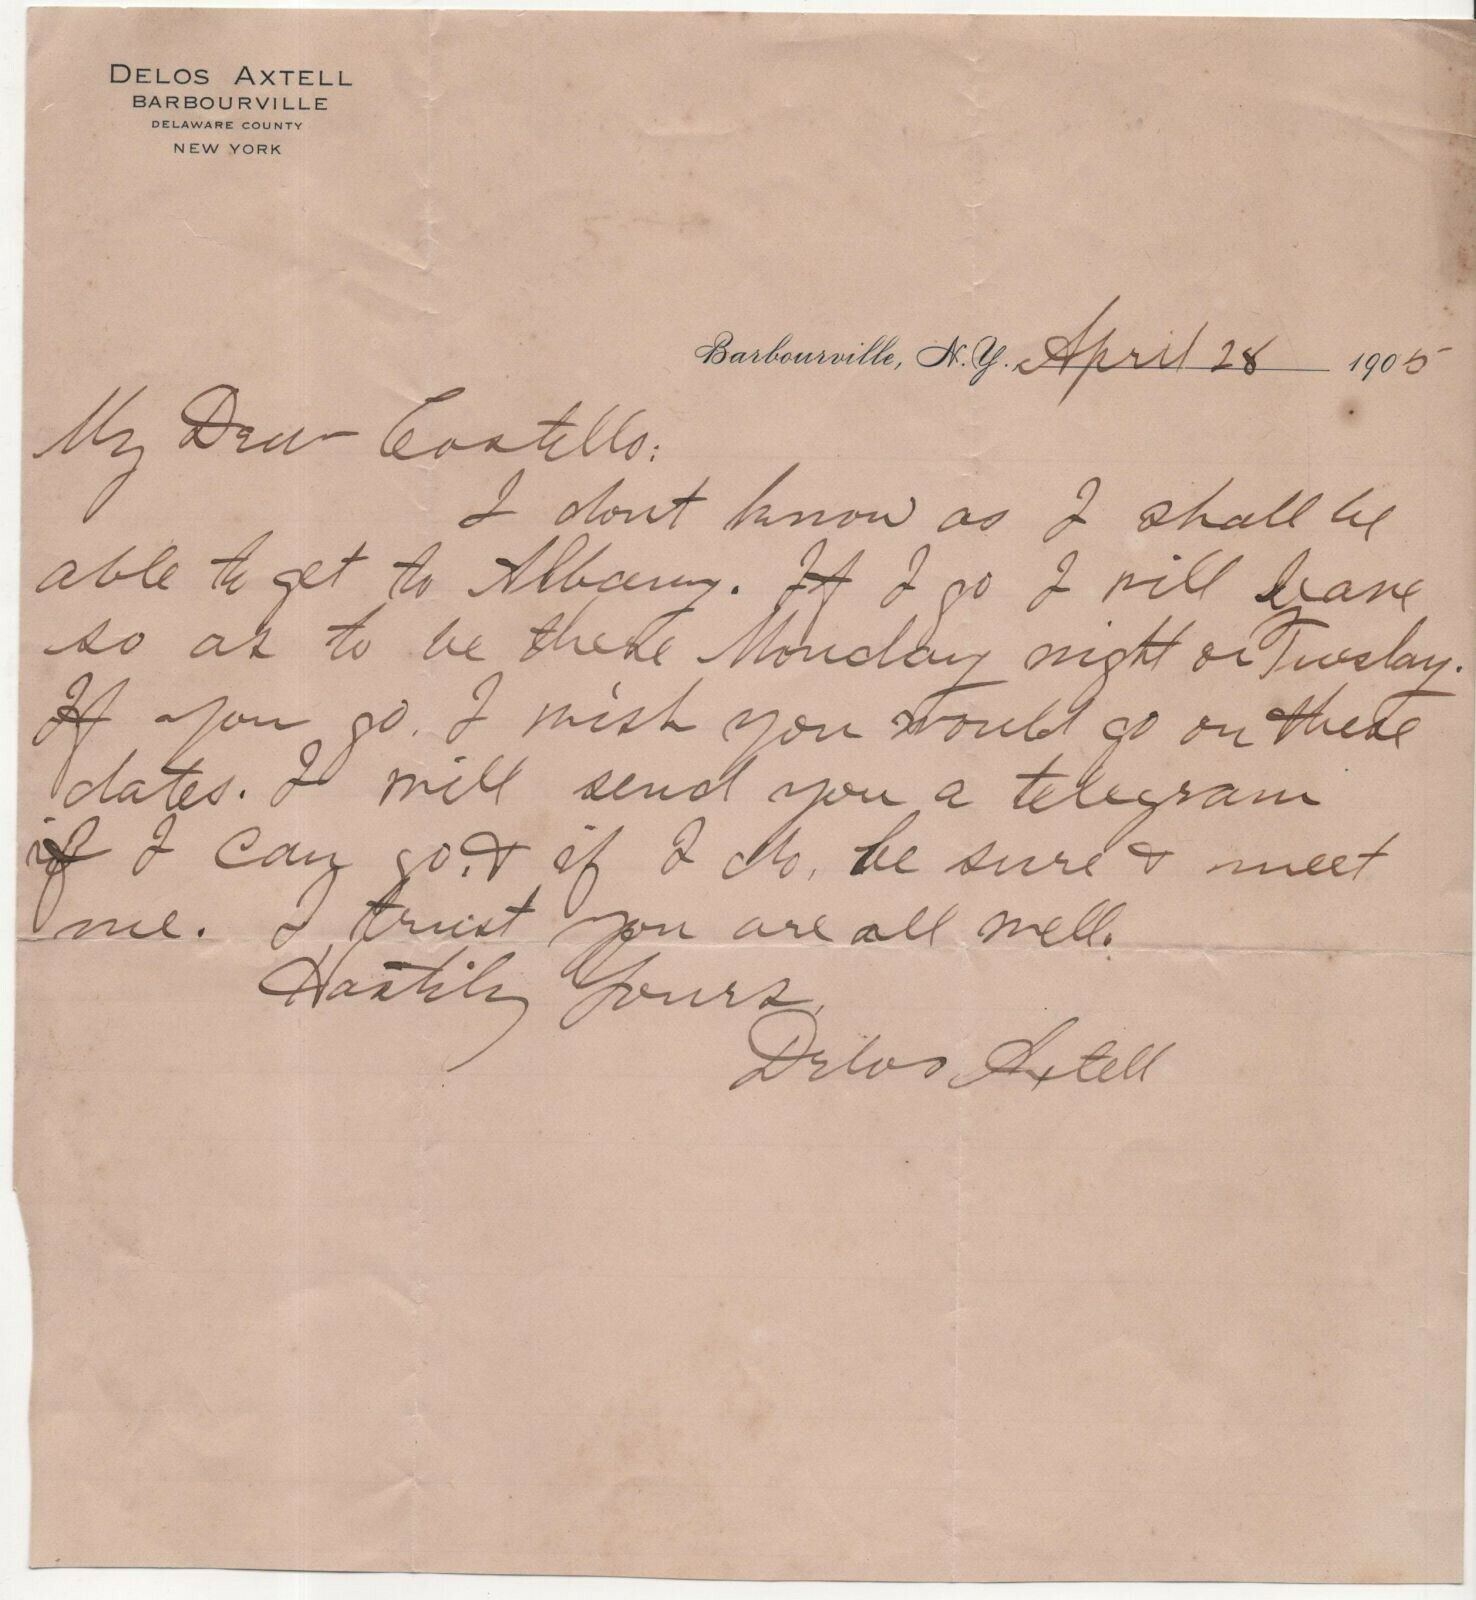 DELOS AXTELL
BARBOURVILLE
DELAWARE COUNTY
NEW YORK
Barbourville, N.Y. April 28 1905
My Dear Costello:
I dont know as I shall be
able to get to Albany. If I go I will leave
so as to be there Monday night or Tuesday.
If you go, I wish you would go on these
dates. I will send you a telegram
if I can go, & if I do, be sure & meet
me. I trust you are all well.
Hastily Yours,
Delos Axtell